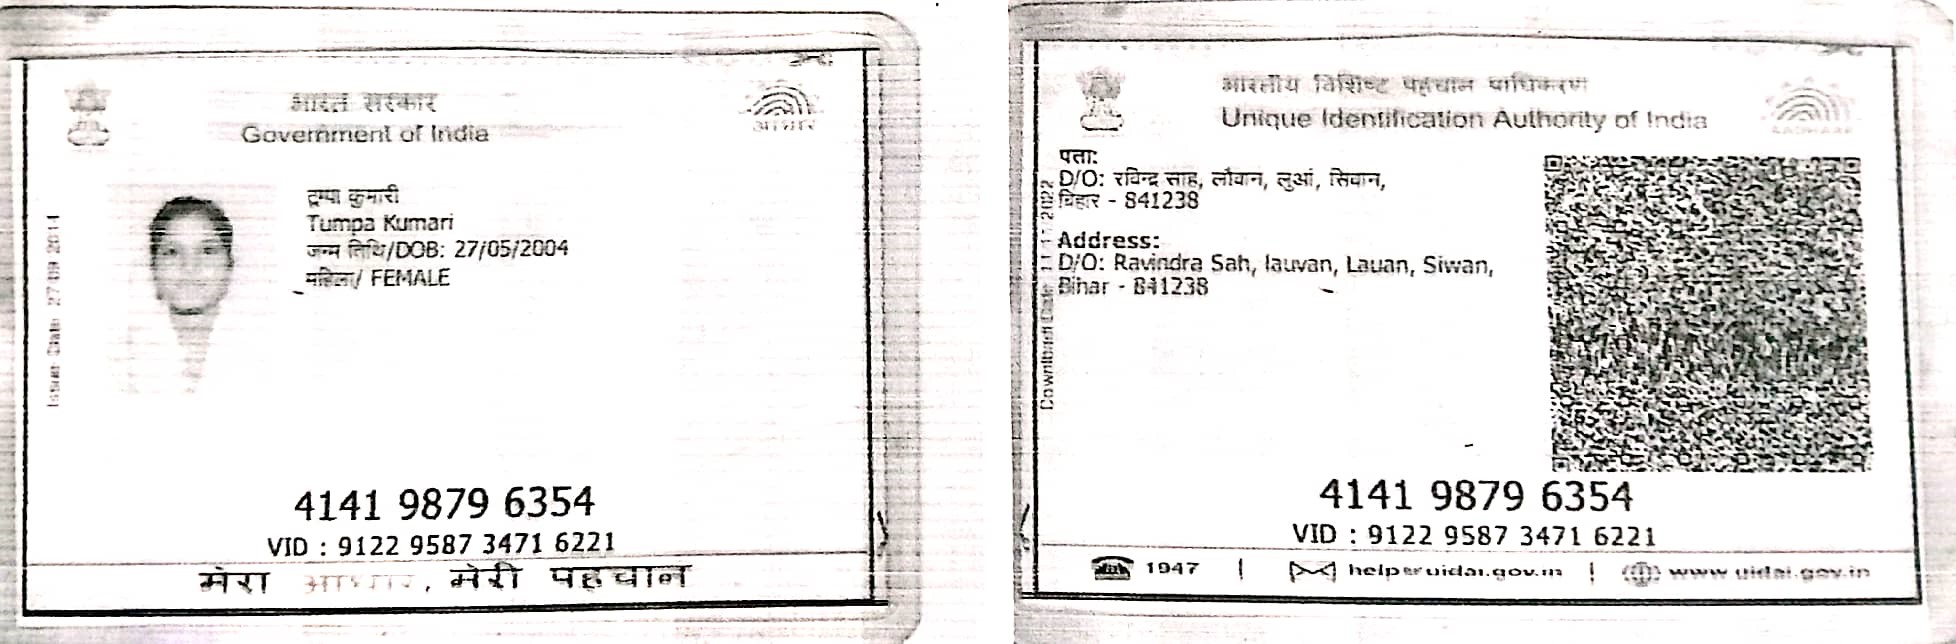 भारत सरकार
Government of India
आधार
Issue Date: 27/09/2014
टुम्पा कुमारी
Tumpa Kumari
जन्म तिथि/DOB: 27/05/2004
महिला/ FEMALE
4141 9879 6354
VID : 9122 9587 3471 6221
मेरा आधार, मेरी पहचान
भारतीय विशिष्ट पहचान प्राधिकरण
Unique Identification Authority of India
AADHAAR
Download Date:
पता:
D/O: रविन्द्र साह, लौवान, लुआं, सिवान,
बिहार - 841238
Address:
D/O: Ravindra Sah, lauvan, Lauan, Siwan,
Bihar - 841238
4141 9879 6354
VID : 9122 9587 3471 6221
1947 | help@uidai.gov.in | www.uidai.gov.in